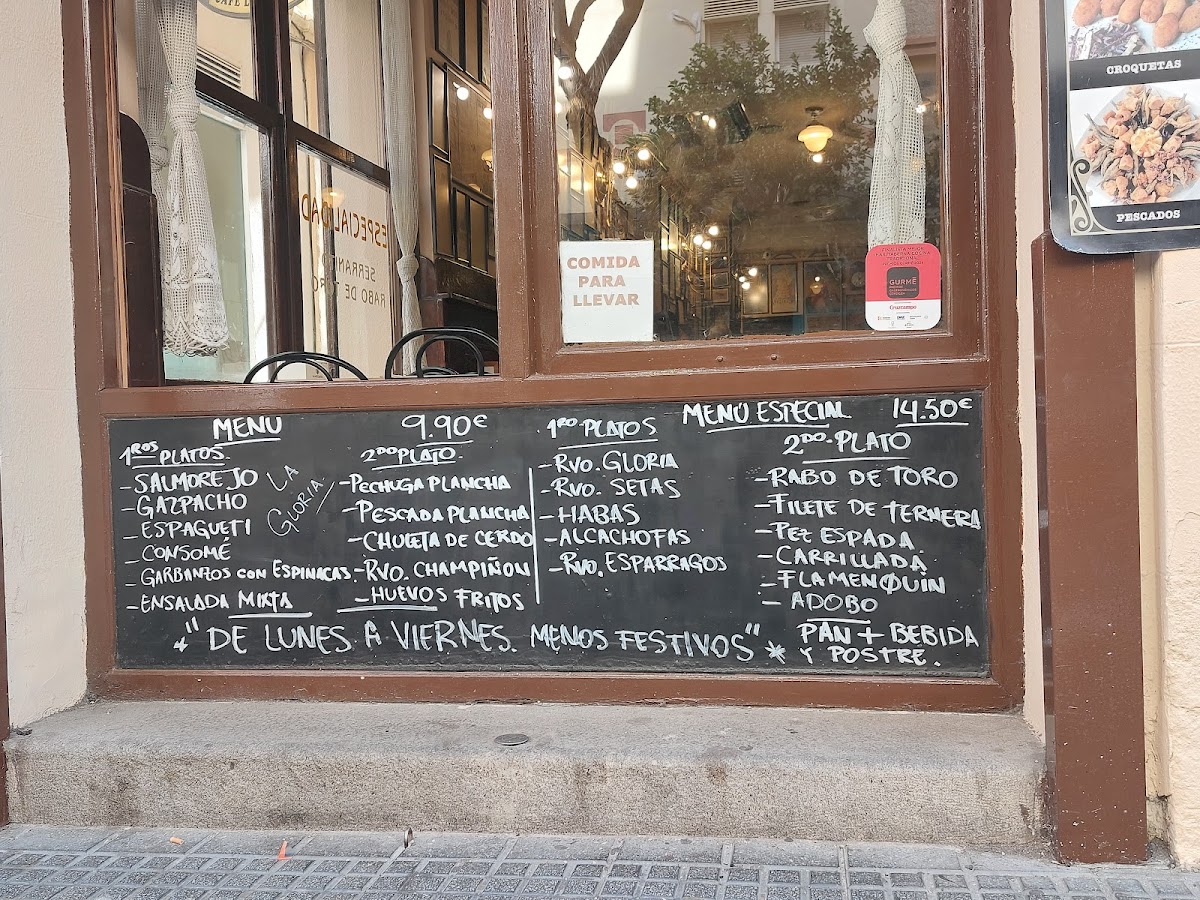 CROQUETAS
PESCADOS
ESPECIALIDAD
COMIDA
PARA
LLEVAR
GURMÉ
Cruzcampo
MENU 9.90€
1ROS PLATOS
- SALMOREJO
- GAZPACHO
- ESPAGUETI
- CONSOMÉ
- GARBANZOS CON ESPINACAS
- ENSALADA MIXTA
LA
GLORIA
2DO PLATO
- PECHUGA PLANCHA
- PESCADA PLANCHA
- CHULETA DE CERDO
- RVO. CHAMPIÑON
- HUEVOS FRITOS
MENU ESPECIAL 14.50€
1RO PLATOS
- RVO. GLORIA
- RVO. SETAS
- HABAS
- ALCACHOFAS
- RVO. ESPARRAGOS
2DO. PLATO
- RABO DE TORO
- FILETE DE TERNERA
- PEZ ESPADA
- CARRILLADA
- FLAMENQUIN
- ADOBO
PAN + BEBIDA
Y POSTRE.
* "DE LUNES A VIERNES. MENOS FESTIVOS" *